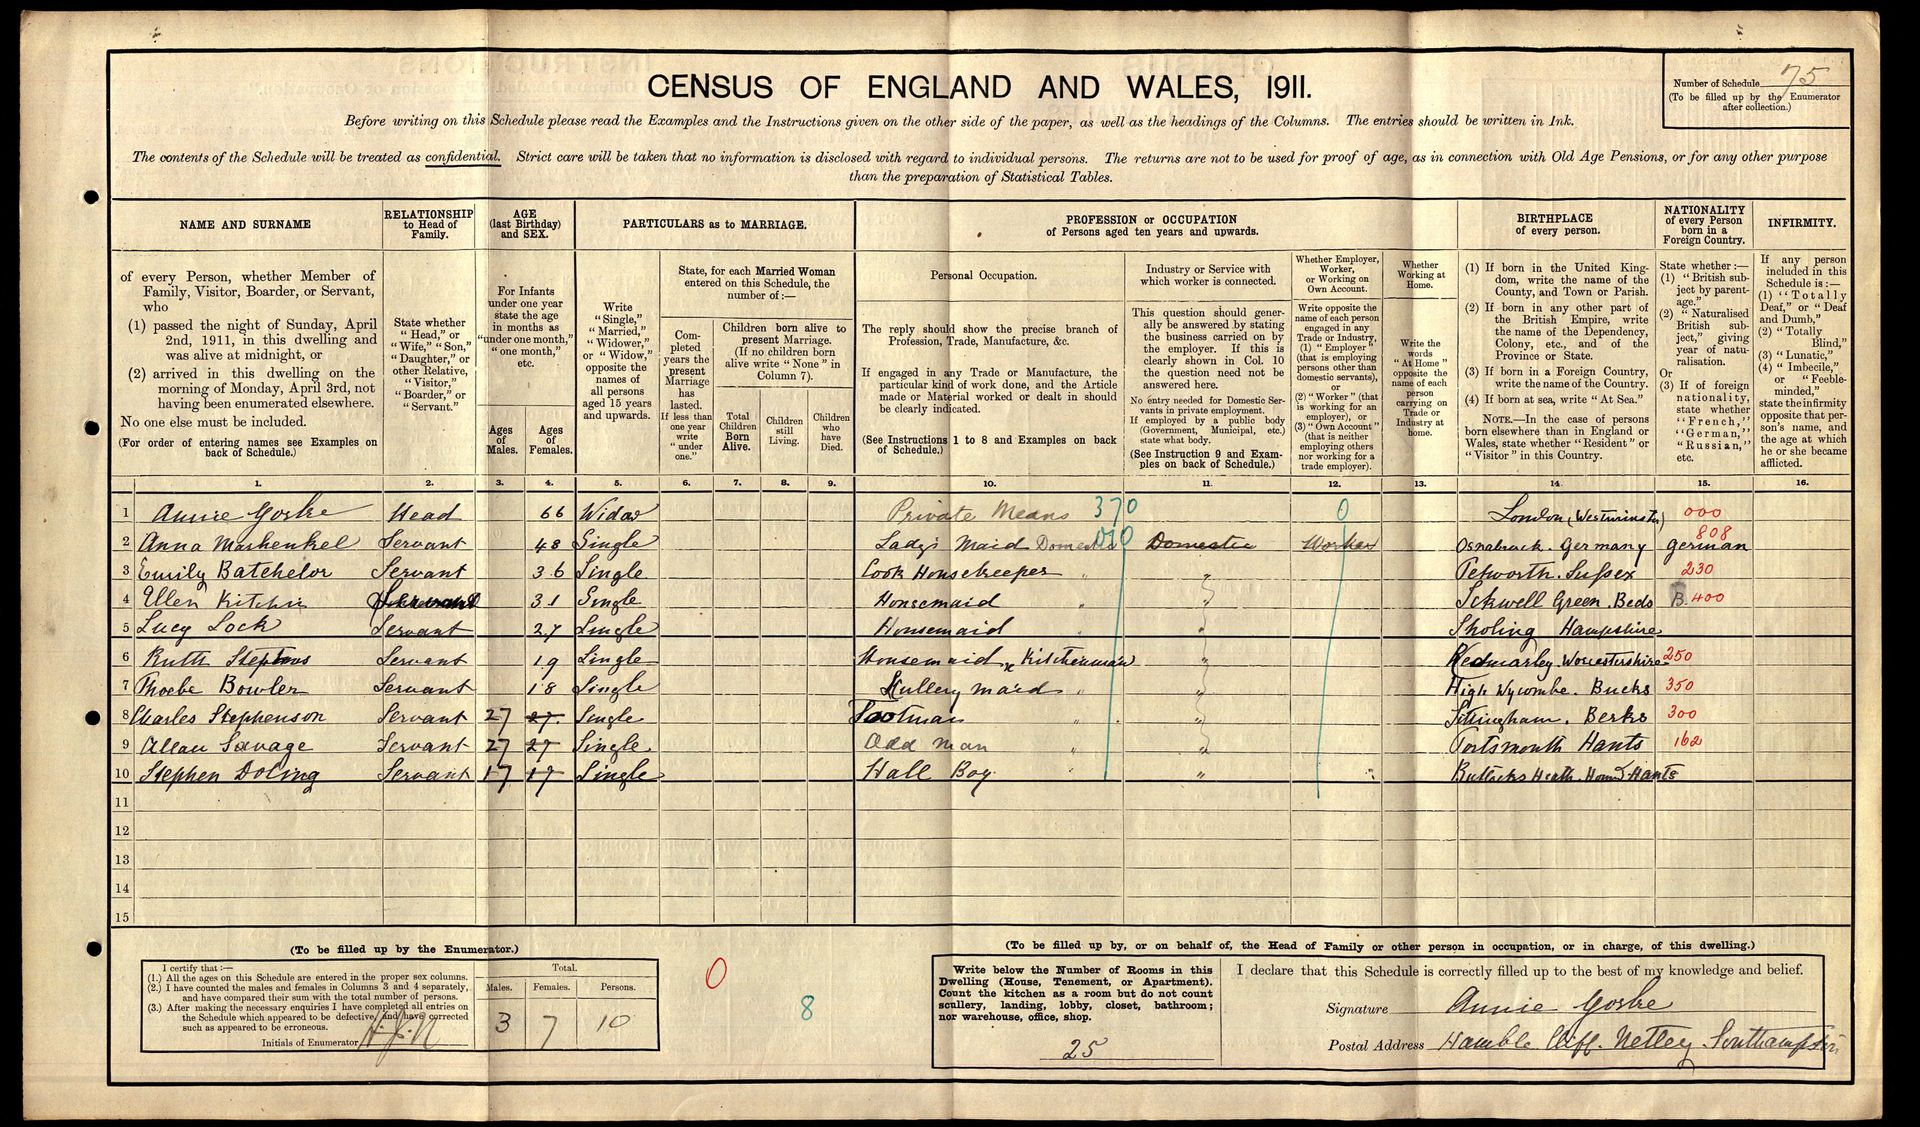 CENSUS OF ENGLAND AND WALES, 1911.
Number of Schedule 75
(To be filled up by the Enumerator after collection.)
Before writing on this Schedule please read the Examples and the Instructions given on the other side of the paper, as well as the headings of the Columns. The entries should be written in Ink.
The contents of the Schedule will be treated as confidential. Strict care will be taken that no information is disclosed with regard to individual persons. The returns are not to be used for proof of age, as in connection with Old Age Pensions, or for any other purpose
than the preparation of Statistical Tables.
NAME AND SURNAME
of every Person, whether Member of
Family, Visitor, Boarder, or Servant,
who
(1) passed the night of Sunday, April
2nd, 1911, in this dwelling and
was alive at midnight, or
(2) arrived in this dwelling on the
morning of Monday, April 3rd, not
having been enumerated elsewhere.
No one else must be included.
(For order of entering names see Examples on
back of Schedule.)
RELATIONSHIP
to Head of
Family.
State whether
"Head," or
"Wife," "Son,"
"Daughter," or
other Relative,
"Visitor,"
"Boarder," or
"Servant."
AGE
(last Birthday)
and SEX.
For Infants
under one year
state the age
in months as
"under one month,"
"one month,"
etc.
Ages
of
Males.
Ages
of
Females.
PARTICULARS as to MARRIAGE.
Write
"Single,"
"Married,"
"Widower,"
or "Widow,"
opposite the
names of
all persons
aged 15 years
and upwards.
State, for each Married Woman
entered on this Schedule, the
number of:—
Com-
pleted
years the
present
Marriage
has
lasted.
If less than
one year
write
"under
one."
Children born alive to
present Marriage.
(If no children born
alive write "None" in
Column 7).
Total
Children
Born
Alive.
Children
still
Living.
Children
who
have
Died.
PROFESSION or OCCUPATION
of Persons aged ten years and upwards.
Personal Occupation.
The reply should show the precise branch of
Profession, Trade, Manufacture, &c.
If engaged in any Trade or Manufacture, the
particular kind of work done, and the Article
made or Material worked or dealt in should
be clearly indicated.
(See Instructions 1 to 8 and Examples on back
of Schedule.)
Industry or Service with
which worker is connected.
This question should gener-
ally be answered by stating
the business carried on by
the employer. If this is
clearly shown in Col. 10
the question need not be
answered here.
No entry needed for Domestic Ser-
vants in private employment.
If employed by a public body
(Government, Municipal, etc.)
state what body.
(See Instruction 9 and Exam-
ples on back of Schedule.)
Whether Employer,
Worker,
or Working on
Own Account.
Write opposite the
name of each person
engaged in any
Trade or Industry,
(1) "Employer"
(that is employing
persons other than
domestic servants),
or
(2) "Worker" (that
is working for an
employer), or
(3) "Own Account"
(that is neither
employing others
nor working for a
trade employer).
Whether
Working at
Home.
Write the
words
"At Home"
opposite the
name of each
person
carrying on
Trade or
Industry at
home.
BIRTHPLACE
of every person.
(1) If born in the United King-
dom, write the name of the
County, and Town or Parish.
(2) If born in any other part of
the British Empire, write
the name of the Dependency,
Colony, etc., and of the
Province or State.
(3) If born in a Foreign Country,
write the name of the Country.
(4) If born at sea, write "At Sea."
NOTE.—In the case of persons
born elsewhere than in England or
Wales, state whether "Resident" or
"Visitor" in this Country.
NATIONALITY
of every Person
born in a
Foreign Country.
State whether:—
(1) "British sub-
ject by parent-
age."
(2) "Naturalised
British sub-
ject," giving
year of natu-
ralisation.
Or
(3) If of foreign
nationality,
state whether
"French,"
"German,"
"Russian,"
etc.
INFIRMITY.
If any person
included in this
Schedule is:—
(1) "Totally
Deaf," or "Deaf
and Dumb,"
(2) "Totally
Blind,"
(3) "Lunatic,"
(4) "Imbecile,"
or "Feeble-
minded,"
state the infirmity
opposite that per-
son's name, and
the age at which
he or she became
afflicted.
1. 2. 3. 4. 5. 6. 7. 8. 9. 10. 11. 12. 13. 14. 15. 16.
1 Annie Head 66 Widow Private Means 370 0 London (Westminster) 000
2 Anna Servant 48 Single Lady's Maid Domestic 010 Domestic Worker Osnabruck. Germany German 808
3 Emily Batchelor Servant 36 Single Cook Housekeeper " " Petworth. Sussex 230
4 Ellen Kitchin Servant 31 Single Housemaid " " Ickwell Green. Beds B. 400
5 Lucy Lock Servant 27 Single Housemaid " " Sholing Hampshire
6 Ruth Servant 19 Single Housemaid & Kitchenmaid " Redmarley. Worcestershire 250
7 Phoebe Bowler Servant 18 Single Scullery maid " " High Wycombe. Bucks 350
8 Charles Stephenson Servant 27 27 Single Footman " " Berks 300
9 Allan Savage Servant 27 27 Single Odd man " " Portsmouth Hants 162
10 Stephen Doling Servant 17 17 Single Hall Boy " " Heath. Hound Hants
11
12
13
14
15
(To be filled up by the Enumerator.)
I certify that:—
(1.) All the ages on this Schedule are entered in the proper sex columns.
(2.) I have counted the males and females in Columns 3 and 4 separately,
and have compared their sum with the total number of persons.
(3.) After making the necessary enquiries I have completed all entries on
the Schedule which appeared to be defective, and have corrected
such as appeared to be erroneous.
Initials of Enumerator
Total.
Males. Females. Persons.
3 7 10
0
8
(To be filled up by, or on behalf of, the Head of Family or other person in occupation, or in charge, of this dwelling.)
Write below the Number of Rooms in this
Dwelling (House, Tenement, or Apartment).
Count the kitchen as a room but do not count
scullery, landing, lobby, closet, bathroom;
nor warehouse, office, shop.
25
I declare that this Schedule is correctly filled up to the best of my knowledge and belief.
Signature Annie
Postal Address Hamble Cliff. Netley.